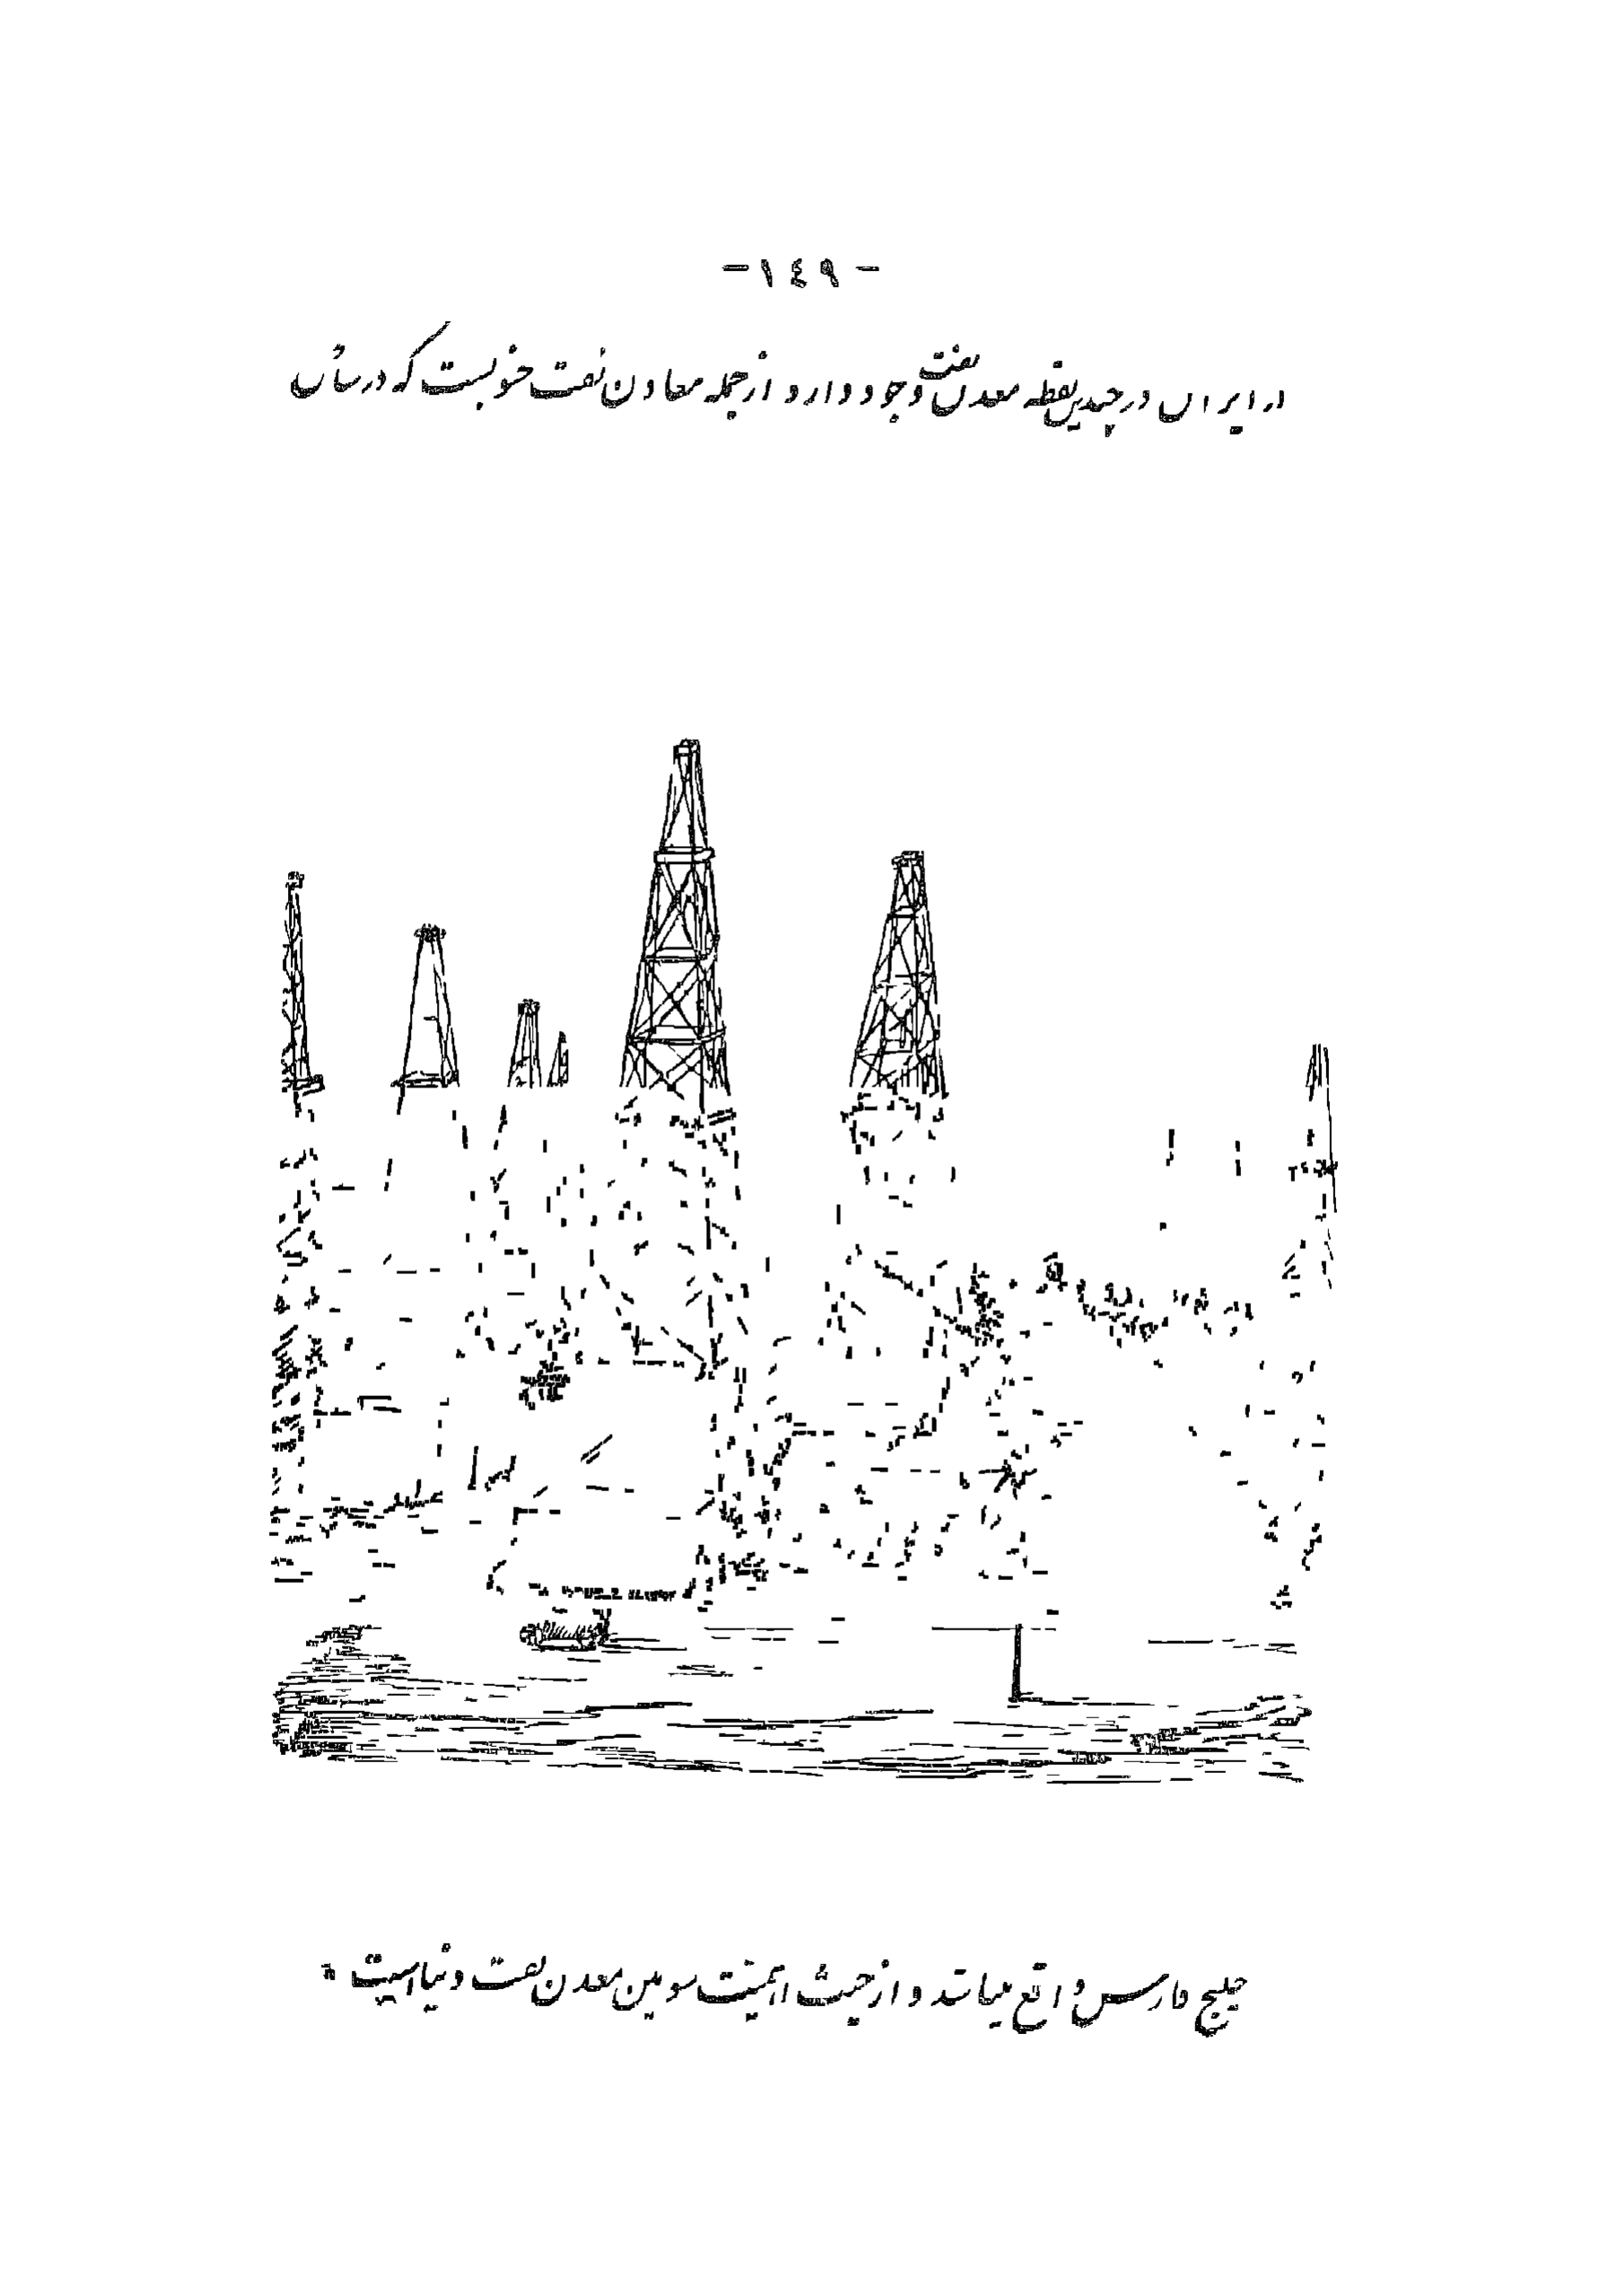 -۱٤۹-
در ایران در چندین نقطه معدن نفت وجود دارد از جمله معادن نفت جنوبست که در
خلیج فارس واقع میباشد و از حیث اهمیت سومین معدن نفت دنیا است